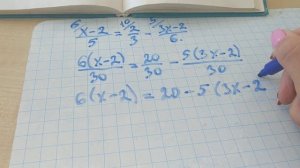 ⁶⁾(x-2)/5 = ¹⁰⁾2/3 - ⁵⁾(3x-2)/6
6(x-2)/30 = 20/30 - 5(3x-2)/30
6(x-2) = 20 - 5(3x-2